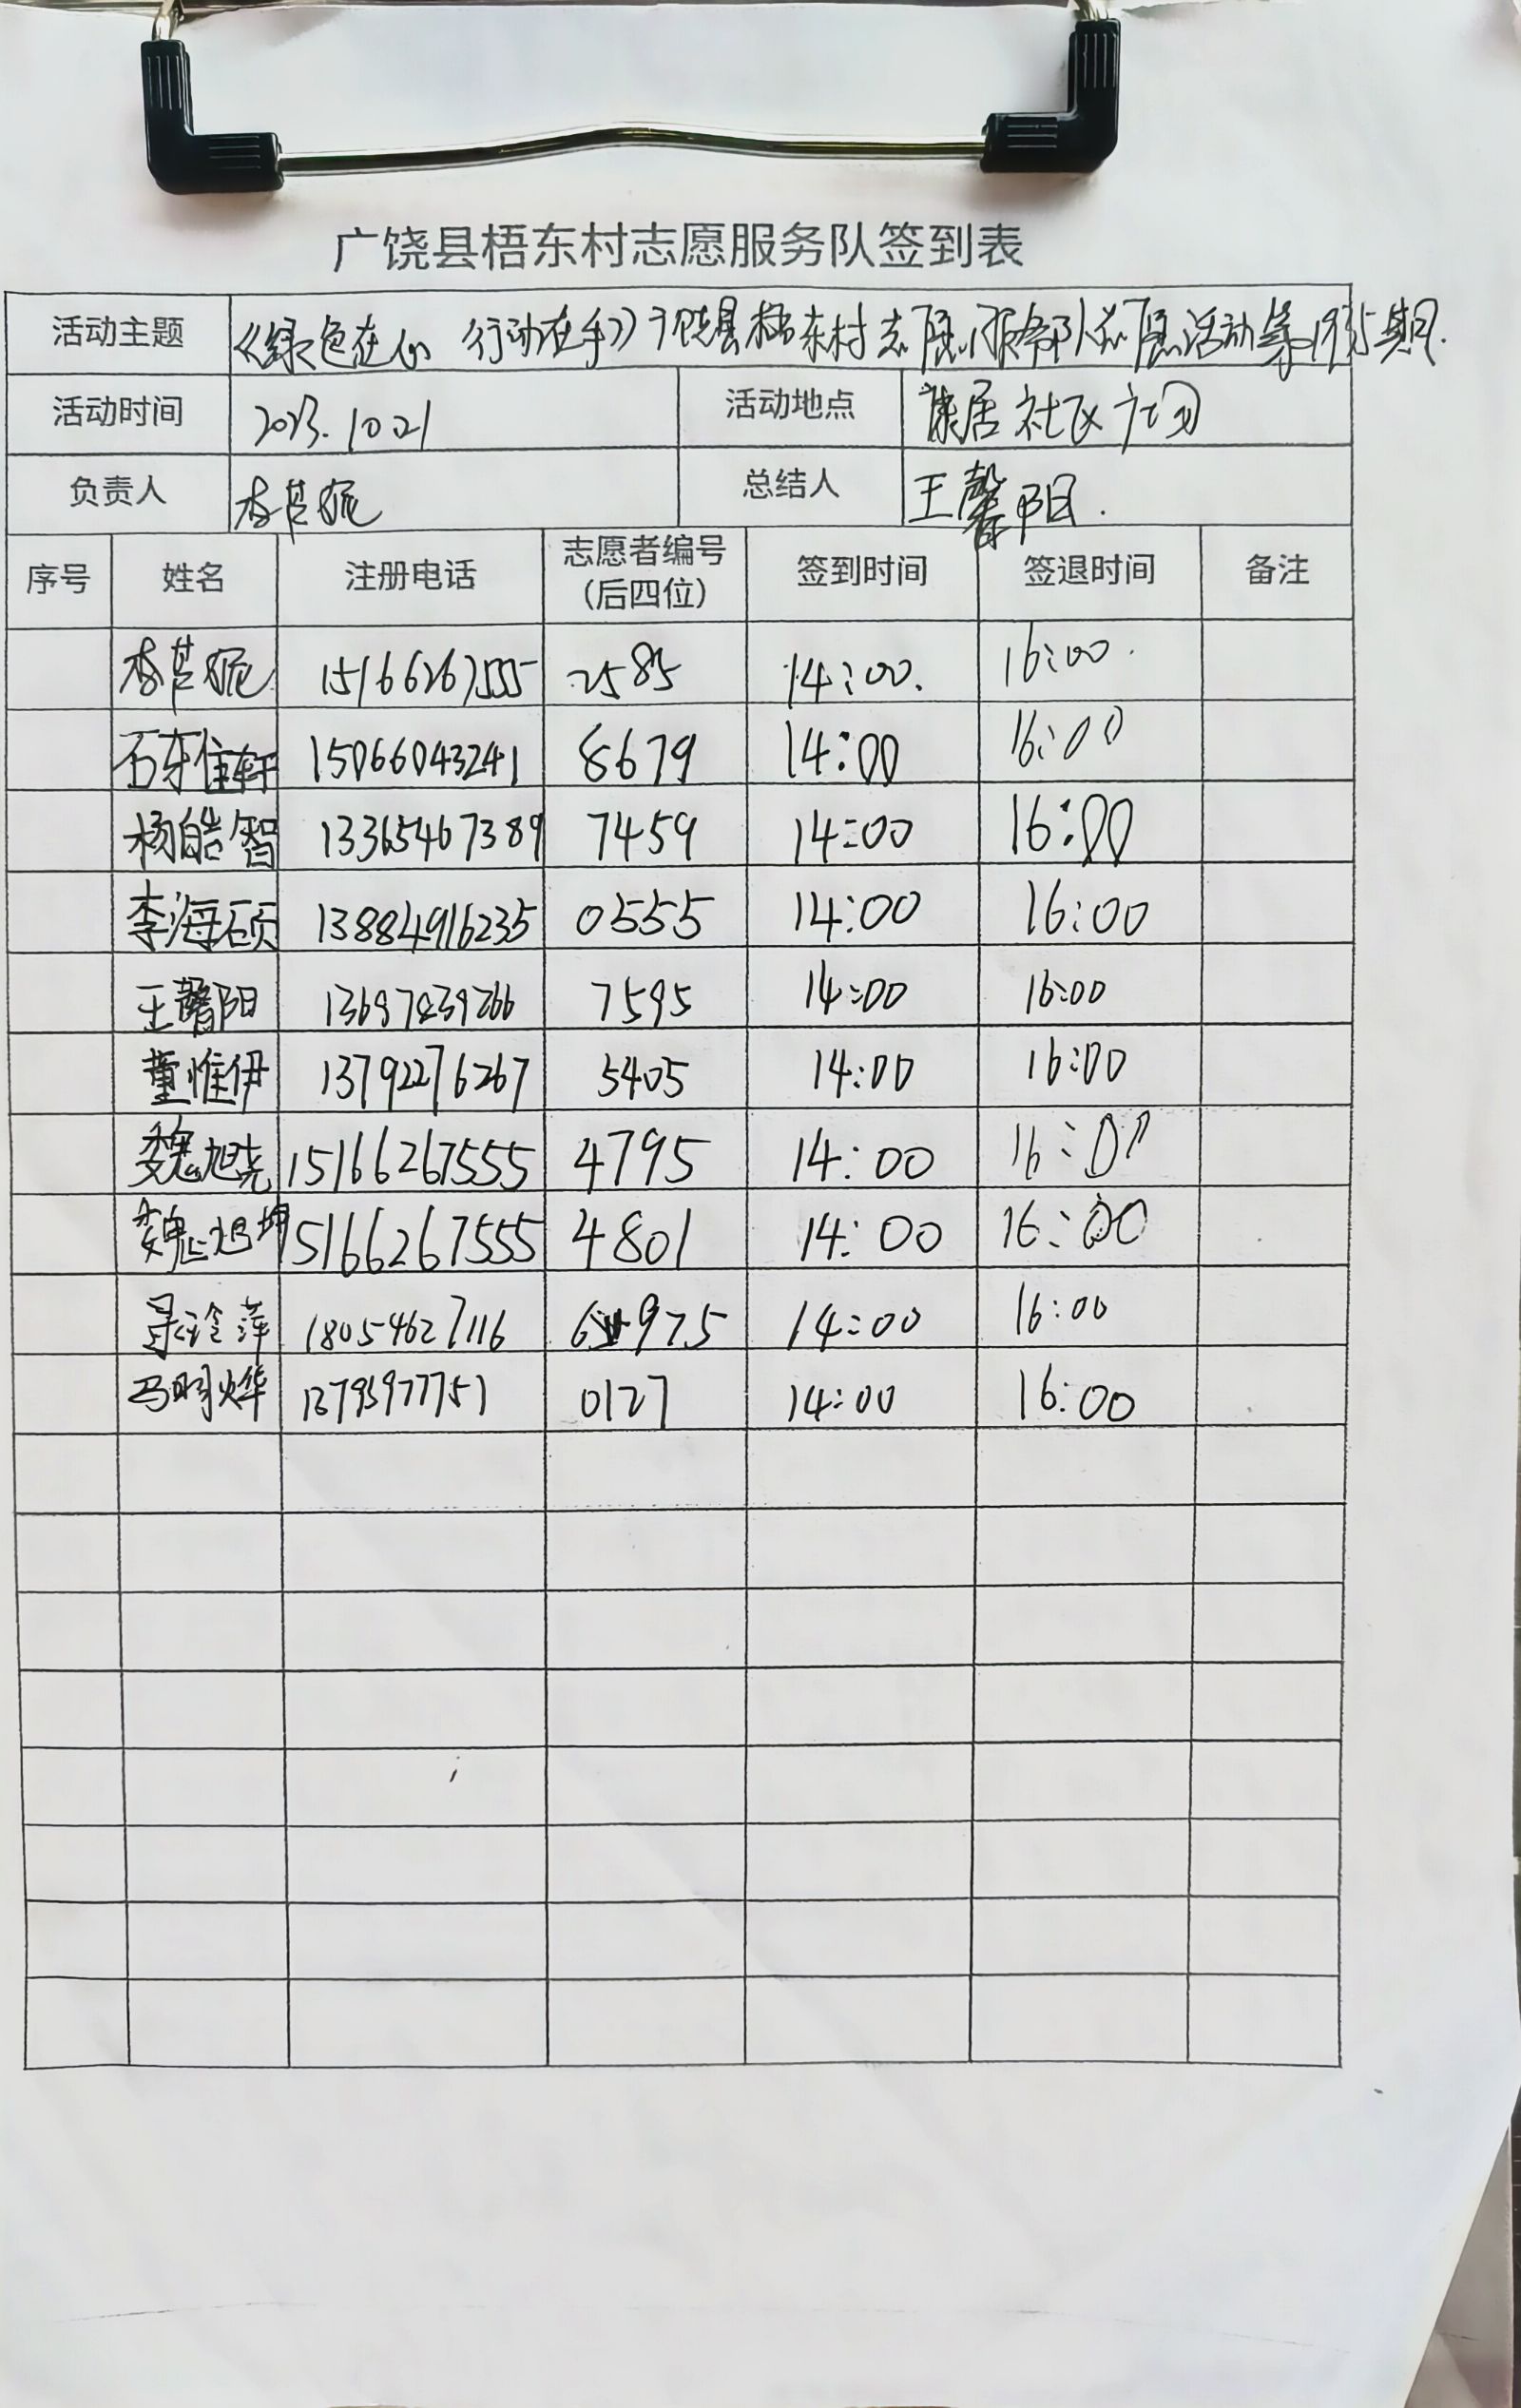 广饶县梧东村志愿服务队签到表
活动主题 《绿色在心 行动在手》广饶县梧东村志愿服务队志愿活动第1935期.
活动时间 2023.10.21 活动地点 康居社区广场
负责人 李 总结人 王馨阳.
序号 姓名 注册电话 志愿者编号(后四位) 签到时间 签退时间 备注
李 15166267555 2585 14:00. 16:00.
石东佳轩 15066043241 8679 14:00 16:00
杨皓智 13365467389 7459 14:00 16:00
李海硕 13884916235 0555 14:00 16:00
王馨阳 7595 14:00 16:00
董惟伊 13792276267 5405 14:00 16:00
魏旭尧 15166267555 4795 14:00 16:00
魏旭坤 15166267555 4801 14:00 16:00
萍 18054627116 6975 14:00 16:00
马明烨 13793977751 0127 14:00 16:00